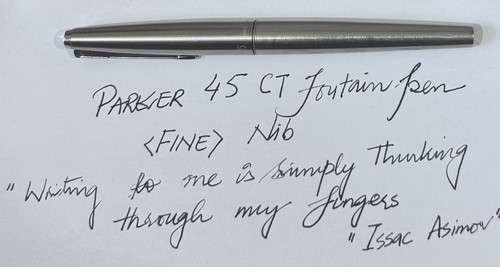 PARKER 45 CT foutain pen
<FINE> Nib
"Writing to me is simply Thinking
through my fingers
"Issac Asimov"